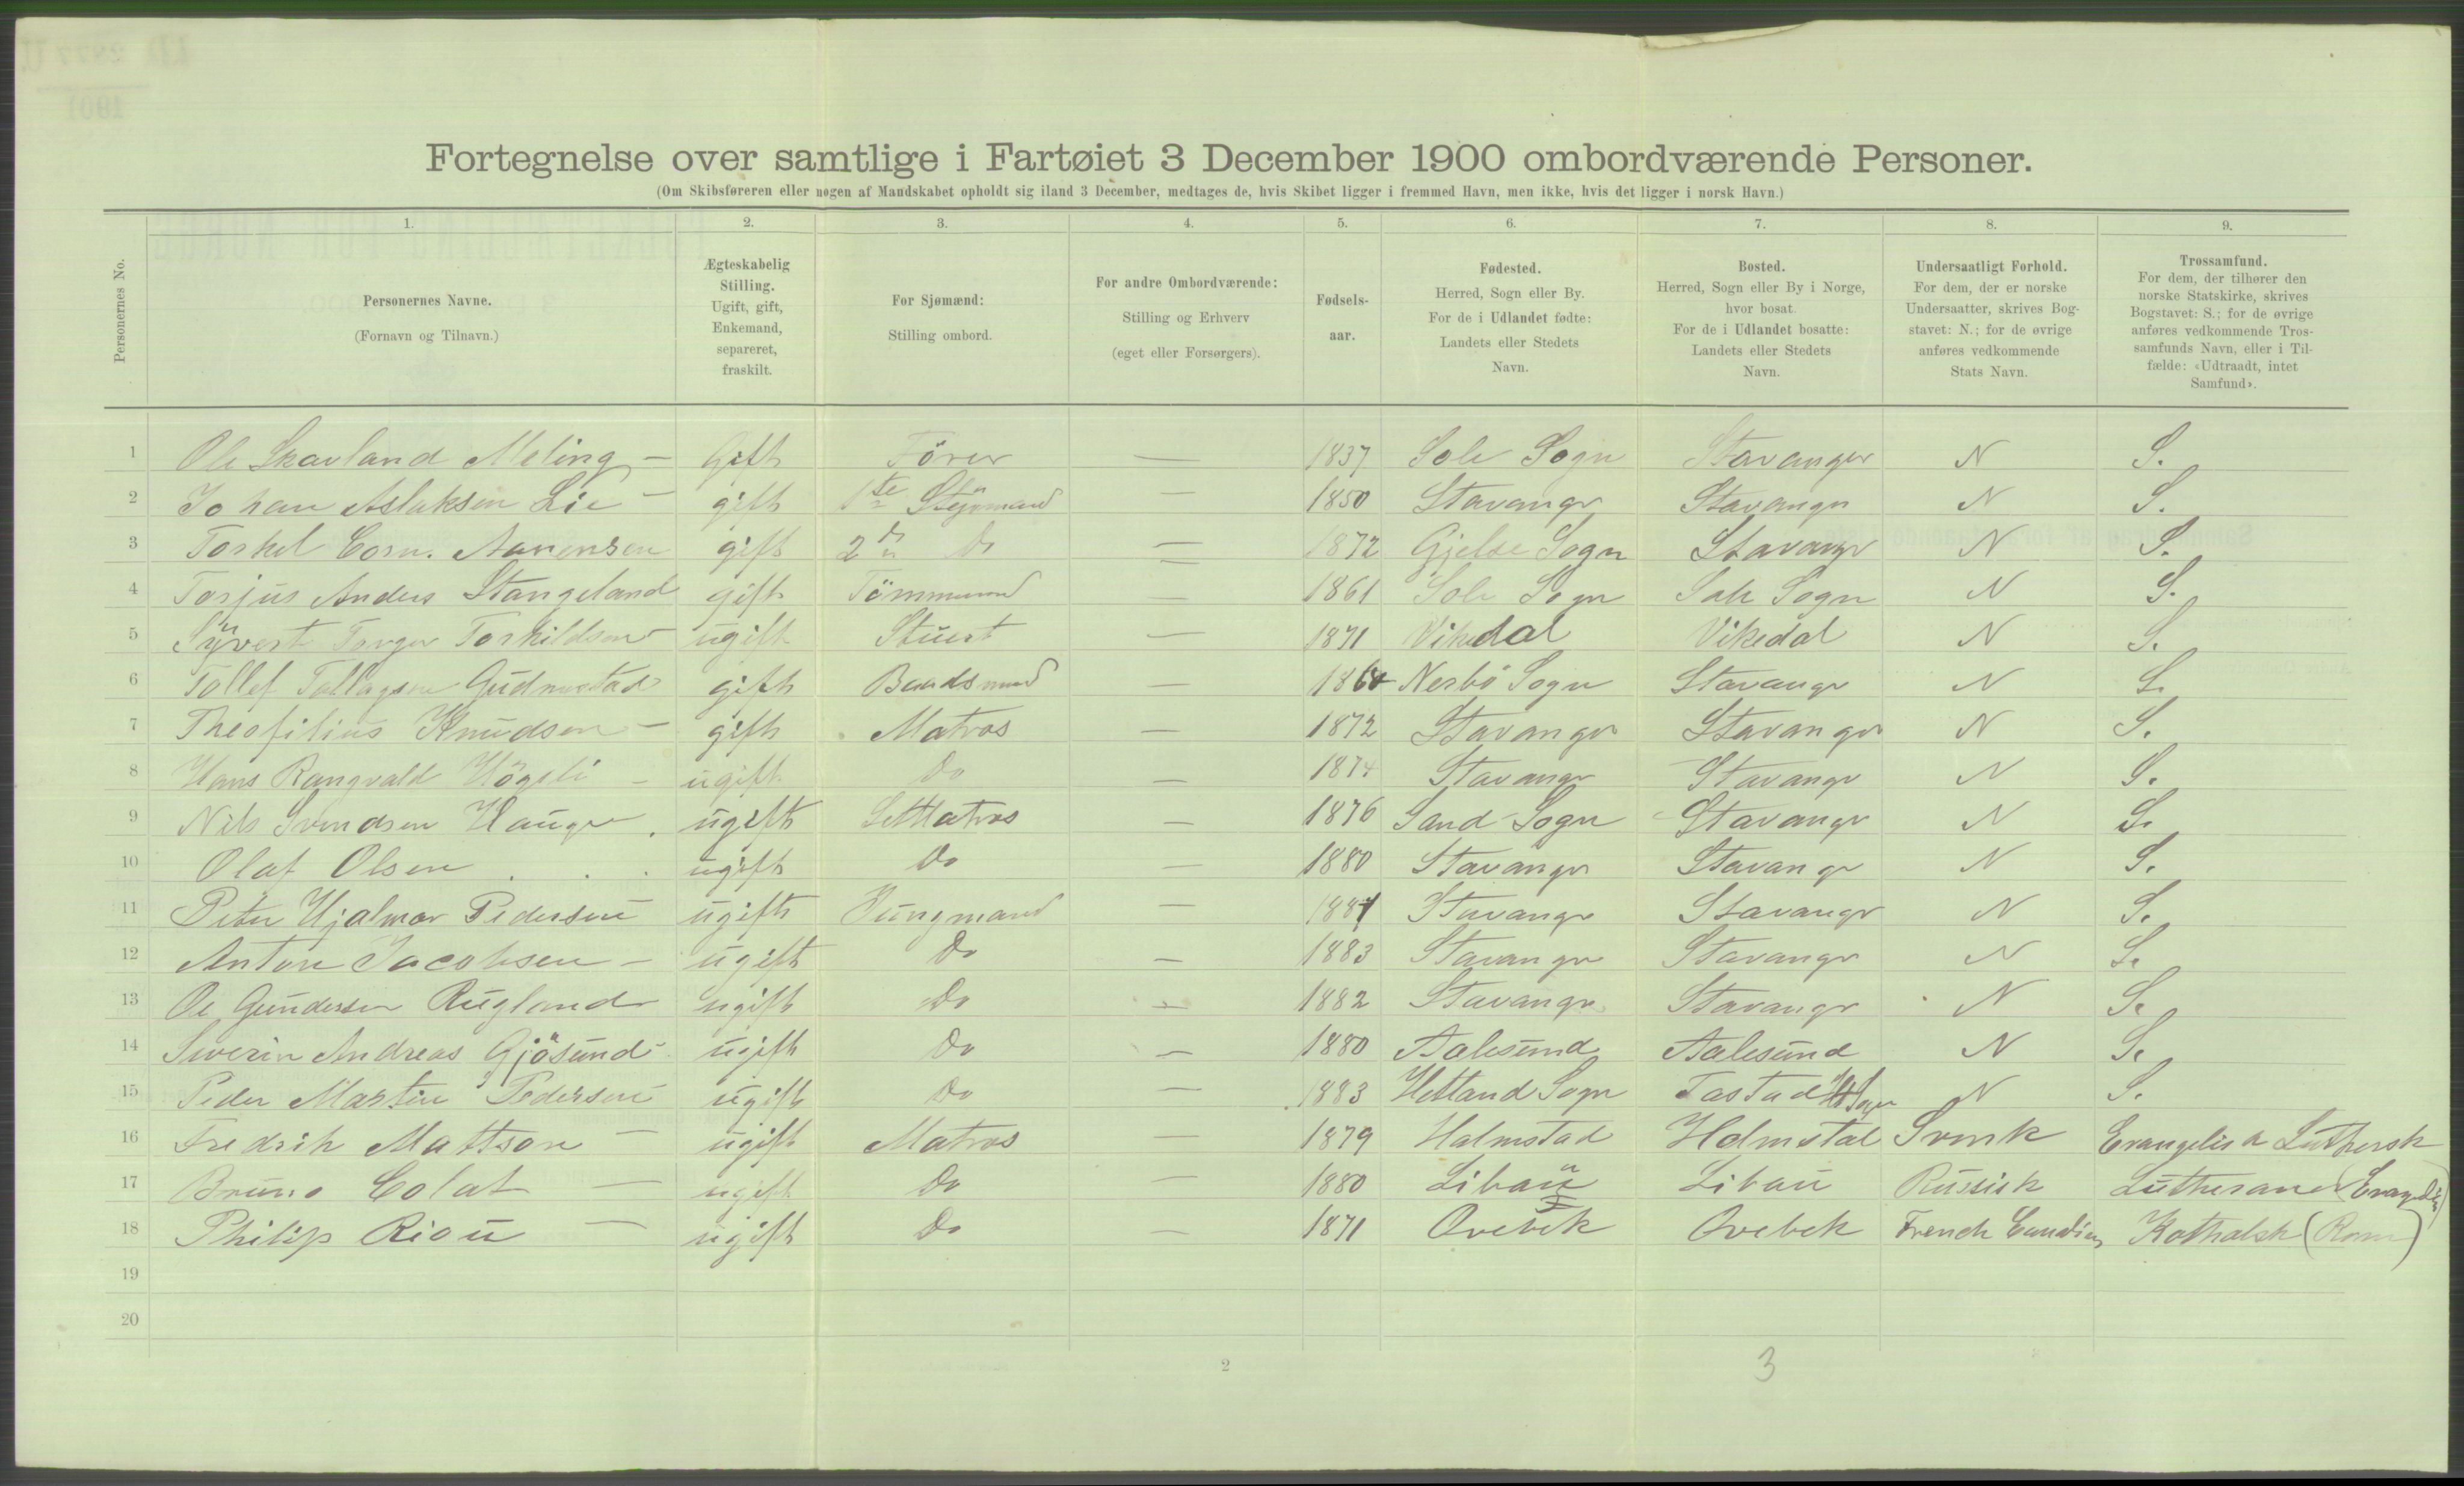 Fortegnelse over samtlige i Fartøiet 3 December 1900 ombordværende Personer.
(Om Skibsføreren eller nogen af Mandskabet opholdt sig iland 3 December, medtages de, hvis Skibet ligger i fremmed Havn, men ikke, hvis det ligger i norsk Havn.)
Personernes No.
1. Personernes Navne. (Fornavn og Tilnavn.)
2. Ægteskabelig Stilling. Ugift, gift, Enkemand, separeret, fraskilt.
3. For Sjømænd: Stilling ombord.
4. For andre Ombordværende: Stilling og Erhverv (eget eller Forsørgers).
5. Fødsels-aar.
6. Fødested. Herred, Sogn eller By. For de i Udlandet fødte: Landets eller Stedets Navn.
7. Bosted. Herred, Sogn eller By i Norge, hvor bosat. For de i Udlandet bosatte: Landets eller Stedets Navn.
8. Undersaatligt Forhold. For dem, der er norske Undersaatter, skrives Bogstavet: N.; for de øvrige anføres vedkommende Stats Navn.
9. Trossamfund. For dem, der tilhører den norske Statskirke, skrives Bogstavet: S.; for de øvrige anføres vedkommende Trossamfunds Navn, eller i Tilfælde: «Udtraadt, intet Samfund».
1 Ole Skavland Meling – Gift Förer — 1837 Sole Sogn Stavanger N S.
2 Johan Aslaksen Lie – gift 1te Styrmand — 1850 Stavanger Stavanger N S.
3 Torkel Corn. Aanensen gift 2n Do — 1872 Gjelse Sogn Stavanger N S.
4 Torjus Anders Stangeland gift Tömmermand — 1861 Sole Sogn Sole Sogn N S.
5 Syvert Torger Torkildsen ugift Stuert — 1871 Vikedal Vikedal N S.
6 Tollef Tollagsen gift Baadsmand — Nerbö Sogn Stavanger N S.
7 Theofilius Knudsen – gift Matros — 1872 Stavanger Stavanger N S.
8 Hans Rangvald Högeli – ugift Do — 1874 Stavanger Stavanger N S.
9 Nils Svendsen Hauge ugift LetMatros — 1876 Sand Sogn Stavanger N S.
10 Olaf Olsen . . . ugift Do — 1880 Stavanger Stavanger N S.
11 Peter Hjalmar Pedersen ugift Jungmand — 1881 Stavanger Stavanger N S.
12 Anton Jacobsen – ugift Do — 1883 Stavanger Stavanger N S.
13 Ole Gundersen Rugland ugift Do — 1882 Stavanger Stavanger N S.
14 Severin Andreas Gjösund ugift Do — 1880 Aalesund Aalesund N S.
15 Peder Martin Pedersen ugift Do — 1883 Hetland Sogn Tastad N S.
16 Fredrik Mattson – ugift Matros — 1879 Halmstad Halmstad Svensk Evangelisk Luthersk
17 Bruno Colat — ugift Do — 1880 Libau Libau Russisk Lutheraner (Evangelisk)
18 Philip Riou — ugift Do — 1871 Qvebek Qvebek French Candien Katholsk (Rom)
19
20
2
3